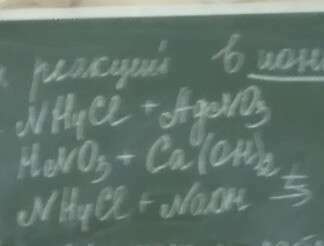 реакций в ион
NH4Cl + AgNO3
HNO3 + Ca(OH)2
NH4Cl + NaOH